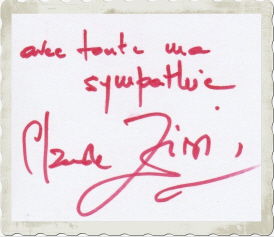 avec toute ma
sympathie
Claude